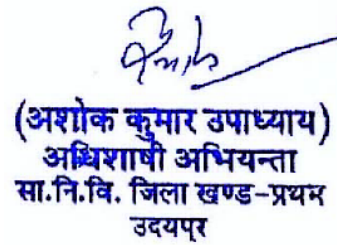 (अशोक कुमार उपाध्याय)
अधिशाषी अभियन्ता
सा.नि.वि. जिला खण्ड-प्रथम
उदयपुर